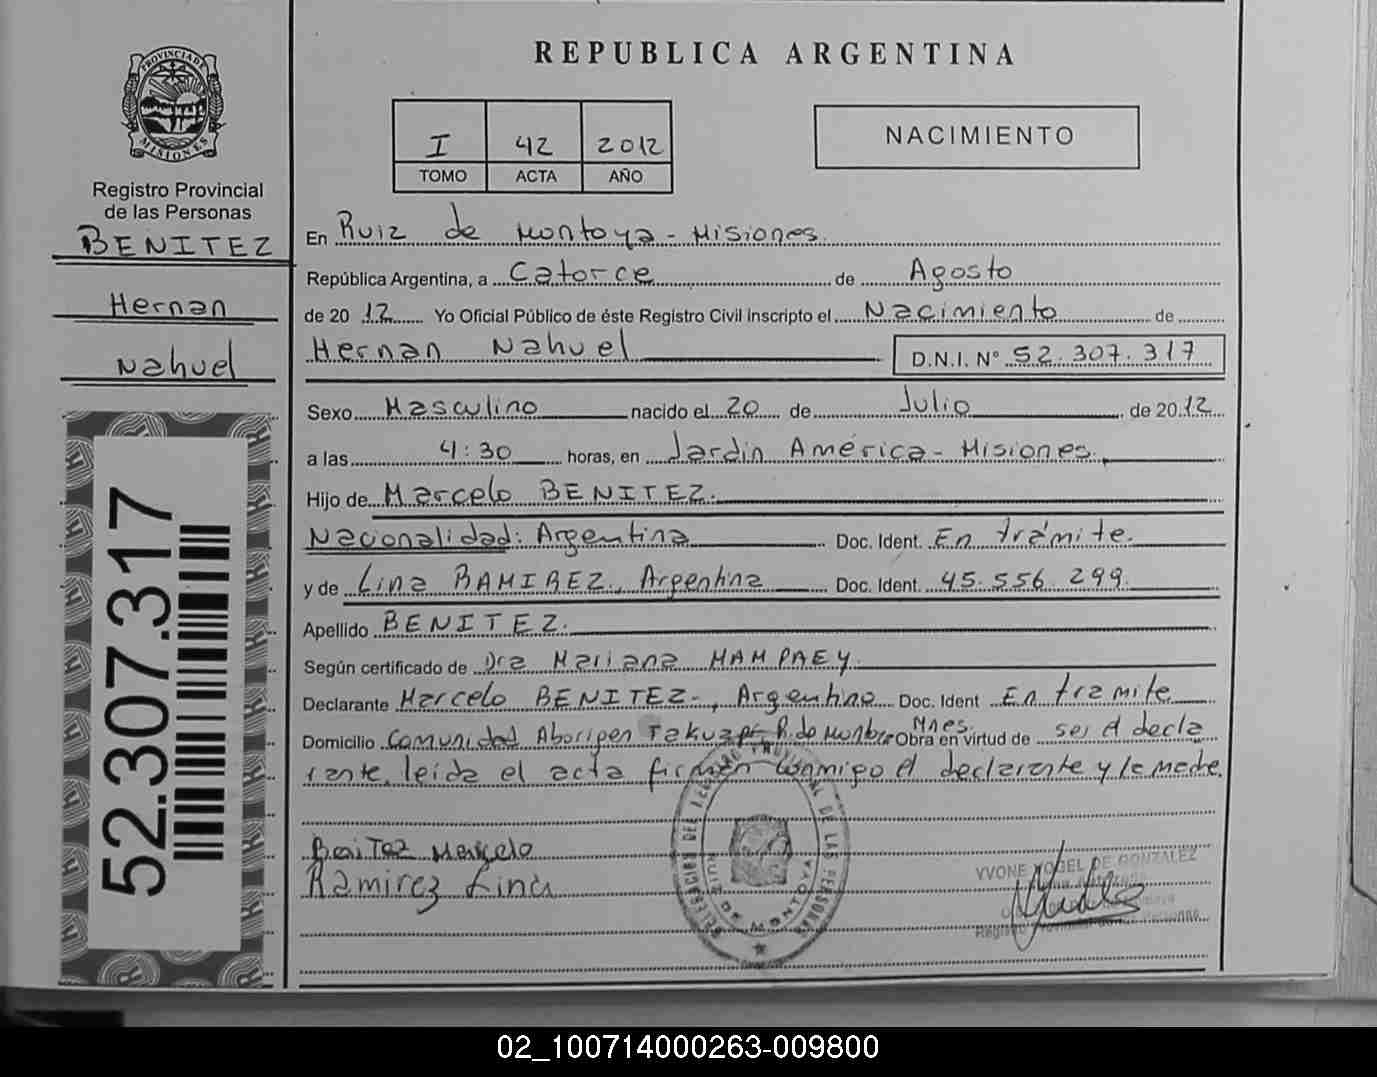 REPUBLICA ARGENTINA
PROVINCIA DE MISIONES
Registro Provincial
de las Personas
BENITEZ
Hernan
Nahuel
52.307.317
I 42 2012
TOMO ACTA AÑO
NACIMIENTO
En Ruiz de Montoya - Misiones.
República Argentina, a Catorce de Agosto
de 20 12 Yo Oficial Público de éste Registro Civil inscripto el Nacimiento de
Hernan Nahuel D.N.I. N° 52.307.317
Sexo Masculino nacido el 20 de Julio de 2012
a las 4:30 horas, en Jardin América - Misiones.
Hijo de Marcelo BENITEZ.
Nacionalidad: Argentina Doc. Ident. En trámite.
y de Lina RAMIREZ, Argentina Doc. Ident. 45.556.299.
Apellido BENITEZ.
Según certificado de Dra Mariana MAMPAEY.
Declarante Marcelo BENITEZ-, Argentino Doc. Ident En tramite
Domicilio Comunidad Aborigen Takuapi R. de Montoya Mnes. Obra en virtud de ser el decla
rante, leida el acta firman conmigo el declarante y la madre.
Benitez Marcelo
Ramirez Lina
DELEGACION DEL REGISTRO PROVINCIAL DE LAS PERSONAS
RUIZ DE MONTOYA
YVONE VOGEL DE GONZALEZ
02_100714000263-009800